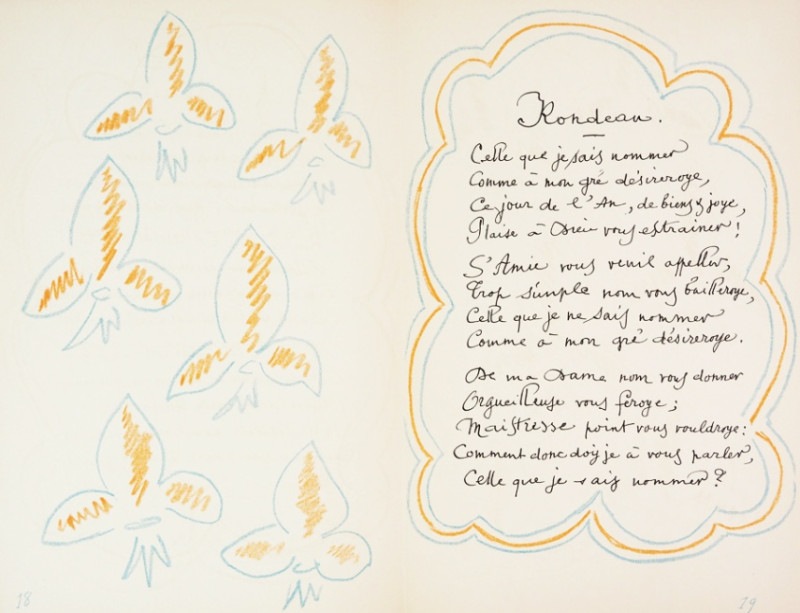 Rondeau.
Celle que je sais nommer
Comme à mon gré désireroye,
Ce jour de l'An, de biens & joye,
Plaise à Dieu vous estrainer!
S'Amie vous veuil appeller,
Trop simple nom vous bailleroye,
Celle que je ne sais nommer
Comme à mon gré désireroye.
De ma Dame nom vous donner
Orgueilleuse vous feroye;
Maistresse point vous vouldroye:
Comment donc doy je à vous parler,
Celle que je sais nommer?
18
19